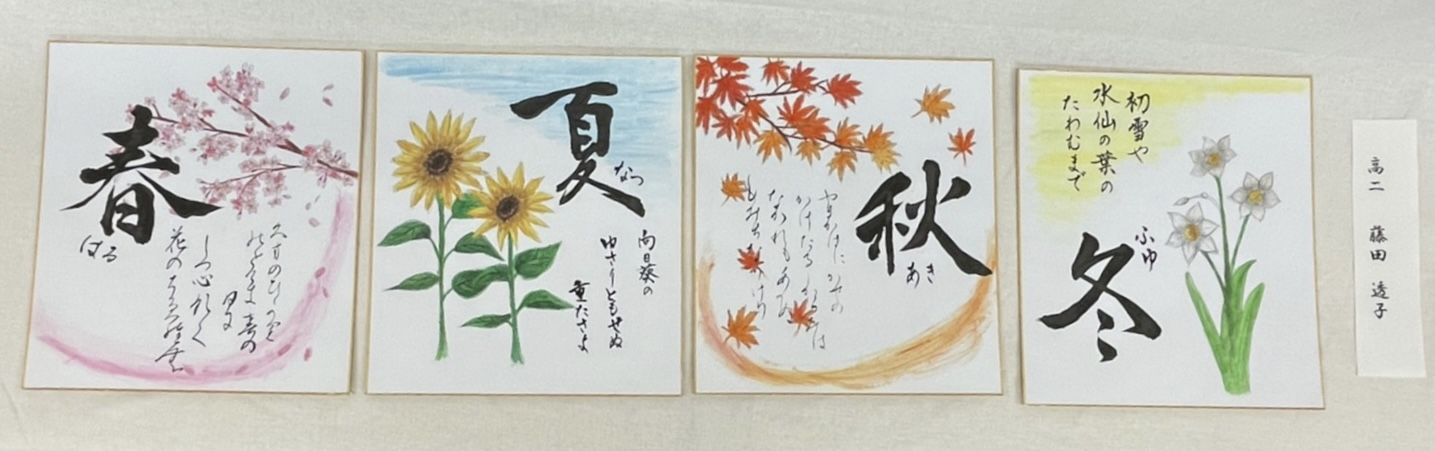 春
はる
久方のひかり
のとけき春の
日に
しつ心なく
花のちるらむ
夏
なつ
向日葵の
ゆさりともせぬ
重たさよ
秋
あき
やまかはにかせの
かけたるしからみは
なかれもあへぬ
もみちなりけり
初雪や
水仙の葉の
たわむまで
冬
ふゆ
高二 藤田 透子